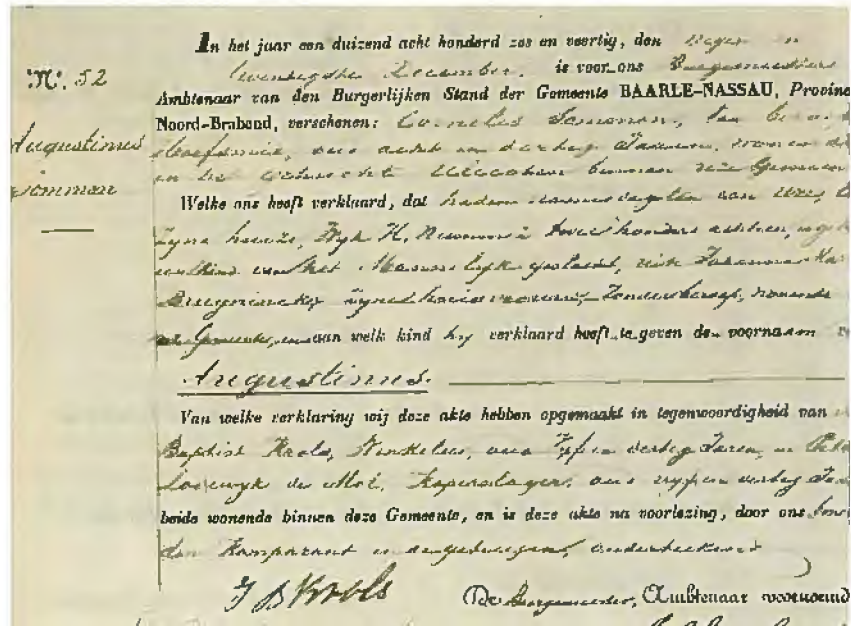 In het jaar een duizend acht honderd zes en veertig, den negen en
twentigste December, is voor ons Burgemeester
N°. 52
Ambtenaar van den Burgerlijken Stand der Gemeente BAARLE-NASSAU, Provinc
Noord-Braband, verschenen: Cornelis Sommen, van beroep
Augustinus
Sommen
hoefsmid, oud acht en dertig Jaren, wonende
in het gehucht binnen deze Gemeen
Welke ons heeft verklaard, dat heden namiddag ten een ure,
zyne huize, Wyk H, Nummer twee honderd achtien,
een kind van het Mannelijk geslacht, uit Johanna
zyne huisvrouw, zonder beroep, wonende
Gemeente, en aan welk kind hy verklaard heeft te geven den voornaam
Augustinus.
Van welke verklaring wij deze akte hebben opgemaakt in tegenwoordigheid van
Baptist Krols, Winkelier, oud Vyf en dertig Jaren, en
Lodewyk de Mol, Koperslager, oud vyf en dertig
beide wonende binnen deze Gemeente, en is deze akte na voorlezing, door ons
den Komparant en de getuigen, onderteekend
J B Krols
De Burgemeester, Ambtenaar voornoemd